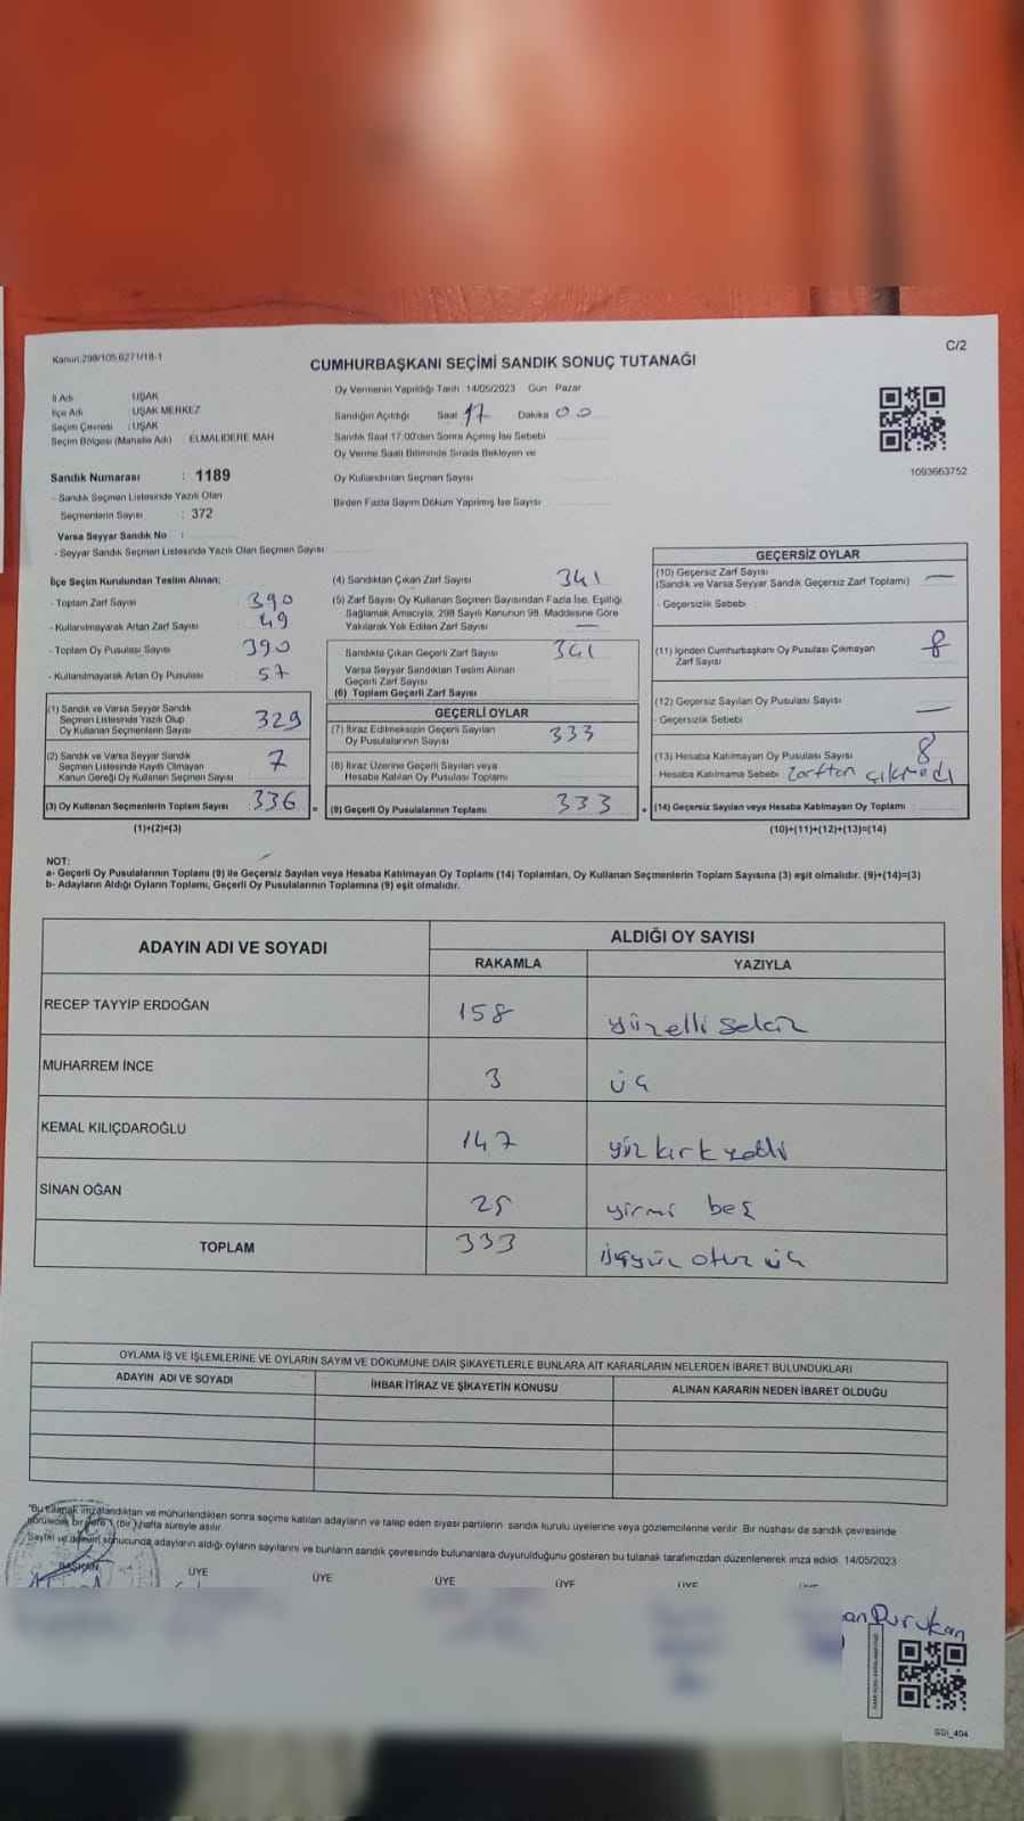 Kanun:298/105,6271/18-1
C/2
CUMHURBAŞKANI SEÇİMİ SANDIK SONUÇ TUTANAĞI
İl Adı : UŞAK
İlçe Adı : UŞAK MERKEZ
Seçim Çevresi : UŞAK
Seçim Bölgesi (Mahalle Adı) : ELMALIDERE MAH
Oy Vermenin Yapıldığı Tarih 14/05/2023 Gün Pazar
Sandığın Açıldığı Saat 17 Dakika 00
Sandık Saat 17:00'den Sonra Açılmış İse Sebebi
Oy Verme Saati Bitiminde Sırada Bekleyen ve
Oy Kullandırılan Seçmen Sayısı
Birden Fazla Sayım Döküm Yapılmış İse Sayısı
1093663752
Sandık Numarası : 1189
- Sandık Seçmen Listesinde Yazılı Olan
Seçmenlerin Sayısı : 372
Varsa Seyyar Sandık No :
- Seyyar Sandık Seçmen Listesinde Yazılı Olan Seçmen Sayısı
İlçe Seçim Kurulundan Teslim Alınan;
- Toplam Zarf Sayısı 390
- Kullanılmayarak Artan Zarf Sayısı 49
- Toplam Oy Pusulası Sayısı 390
- Kullanılmayarak Artan Oy Pusulası 57
(1) Sandık ve Varsa Seyyar Sandık
Seçmen Listesinde Yazılı Olup
Oy Kullanan Seçmenlerin Sayısı 329
(2) Sandık ve Varsa Seyyar Sandık
Seçmen Listesinde Kayıtlı Olmayan
Kanun Gereği Oy Kullanan Seçmen Sayısı 7
(3) Oy Kullanan Seçmenlerin Toplam Sayısı 336
(1)+(2)=(3)
(4) Sandıktan Çıkan Zarf Sayısı 341
(5) Zarf Sayısı Oy Kullanan Seçmen Sayısından Fazla İse, Eşitliği
Sağlamak Amacıyla, 298 Sayılı Kanunun 98. Maddesine Göre
Yakılarak Yok Edilen Zarf Sayısı —
Sandıkta Çıkan Geçerli Zarf Sayısı 341
Varsa Seyyar Sandıktan Teslim Alınan
Geçerli Zarf Sayısı
(6) Toplam Geçerli Zarf Sayısı
GEÇERLİ OYLAR
(7) İtiraz Edilmeksizin Geçerli Sayılan
Oy Pusulalarının Sayısı 333
(8) İtiraz Üzerine Geçerli Sayılan veya
Hesaba Katılan Oy Pusulası Toplamı
= (9) Geçerli Oy Pusulalarının Toplamı 333
GEÇERSİZ OYLAR
(10) Geçersiz Zarf Sayısı —
(Sandık ve Varsa Seyyar Sandık Geçersiz Zarf Toplamı)
- Geçersizlik Sebebi
(11) İçinden Cumhurbaşkanı Oy Pusulası Çıkmayan 8
Zarf Sayısı
(12) Geçersiz Sayılan Oy Pusulası Sayısı —
- Geçersizlik Sebebi
(13) Hesaba Katılmayan Oy Pusulası Sayısı 8
Hesaba Katılmama Sebebi Zarftan çıkmadı
+ (14) Geçersiz Sayılan veya Hesaba Katılmayan Oy Toplamı
(10)+(11)+(12)+(13)=(14)
NOT:
a- Geçerli Oy Pusulalarının Toplamı (9) ile Geçersiz Sayılan veya Hesaba Katılmayan Oy Toplamı (14) Toplamları, Oy Kullanan Seçmenlerin Toplam Sayısına (3) eşit olmalıdır. (9)+(14)=(3)
b- Adayların Aldığı Oyların Toplamı, Geçerli Oy Pusulalarının Toplamına (9) eşit olmalıdır.
ADAYIN ADI VE SOYADI
ALDIĞI OY SAYISI
RAKAMLA YAZIYLA
RECEP TAYYİP ERDOĞAN 158 yüzelli sekiz
MUHARREM İNCE 3 üç
KEMAL KILIÇDAROĞLU 147 yüz kırk yedi
SİNAN OĞAN 25 yirmi beş
TOPLAM 333 üçyüz otuz üç
OYLAMA İŞ VE İŞLEMLERİNE VE OYLARIN SAYIM VE DÖKÜMÜNE DAİR ŞİKAYETLERLE BUNLARA AİT KARARLARIN NELERDEN İBARET BULUNDUKLARI
ADAYIN ADI VE SOYADI İHBAR İTİRAZ VE ŞİKAYETİN KONUSU ALINAN KARARIN NEDEN İBARET OLDUĞU
"Bu tutanak imzalandıktan ve mühürlendikten sonra seçime katılan adayların ve talep eden siyasi partilerin sandık kurulu üyelerine veya gözlemcilerine verilir. Bir nüshası da sandık çevresinde
görülecek bir yere 1 (bir) hafta süreyle asılır.
Sayım ve döküm sonucunda adayların aldığı oyların sayılarını ve bunların sandık çevresinde bulunanlara duyurulduğunu gösteren bu tutanak tarafımızdan düzenlenerek imza edildi. 14/05/2023
BAŞKAN ÜYE ÜYE ÜYE ÜYE ÜYE
an Durukan
SDI_404